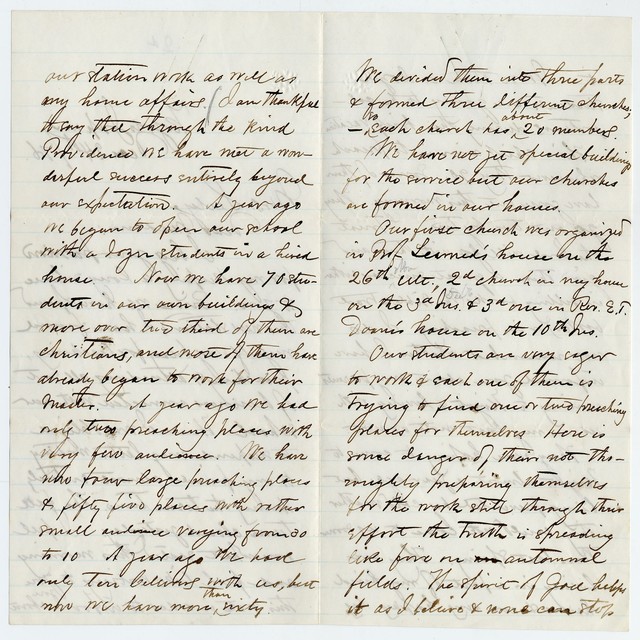 our station work as well as
my home affairs. I am thankful
to say that through the Kind
Providence we have met a won-
derful success entirely beyond
our expectation. A year ago
we began to open our school
with a dozn students in a hired
house. Now we have 70 stu-
dents in our own buildings &
more over two third of them are
christians, and more of them have
already began to work for their
Master. A year ago we had
only two preaching places with
very few audience. We have
now four large preaching places
& fifty five places with rather
small audience varying from 30
to 10 A year ago We had
only ten believers with us, but
now we have more than sixty.
We divided them into three parts
& formed three different churches,
– so each church has about 20 members.
We have not yet special buildings
for the service but our churches
are formed in our houses.
Our first church was organized
in Prof Learned's house on the
26th ult, 2d church in my house
on the 3d ins. & 3d one in Rev. E.T.
Doane's house on the 10th ins.
Our students are very eager
to work & each one of them is
trying to find one or two preaching
places for themselves Here is
some danger of their not tho-
roughly preparing themselves
for the work still through their
effort the truth is spreading
like fire on automnal
fields. The spirit of God helps
it as I believe & none can stop